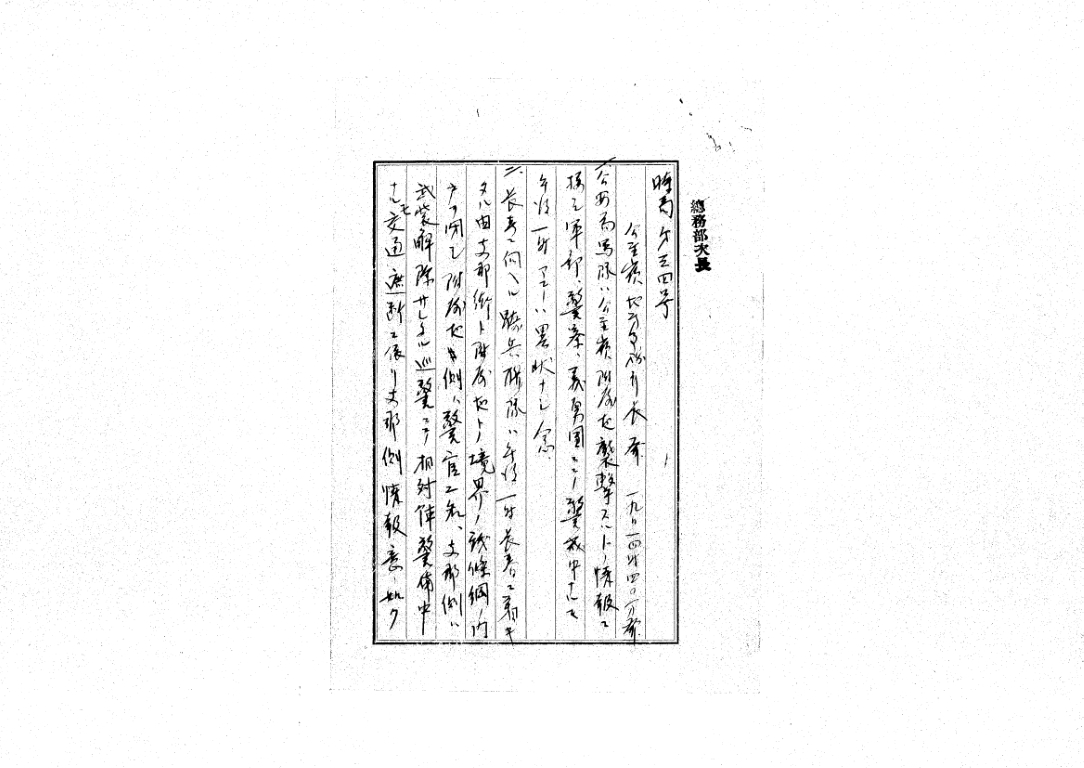 總務部次長
時局第三四号
公主嶺地方事務所長発 一九日一四時四〇分発
一、公安局馬隊ハ公主嶺附属地襲撃スルトノ情報ニ
接シ軍部、警察、義勇團ニテ警戒中ナルモ
午後一時マデハ異状ナシ
二、長春ニ向ヘル騎兵聯隊ハ午後一時長春ニ着キ
タル由支那街ト附属地トノ境界ノ鉄條網ノ内
附属地側ハ警官二名、支那側ハ
武装解除サレタル巡警ニテ相対陣警備中
ナルモ交通遮断ニ依リ支那側情報意ノ如ク